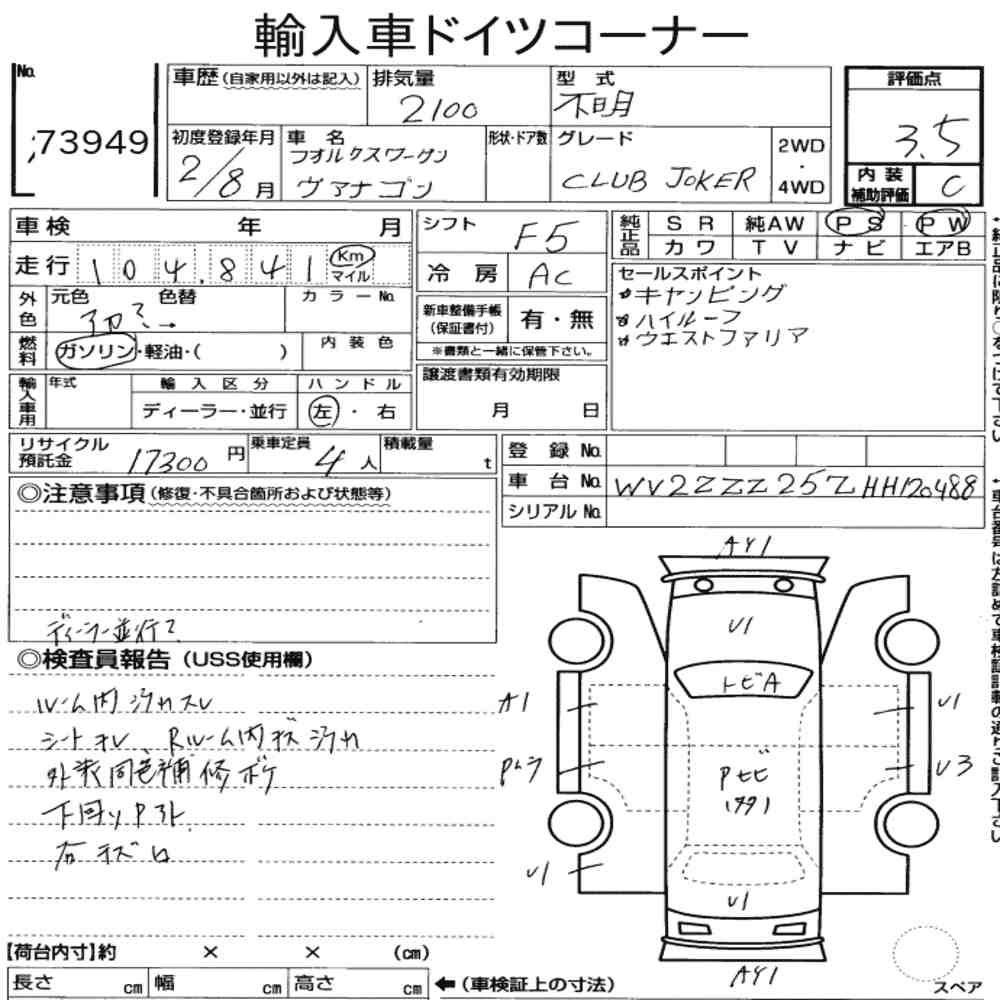 輸入車ドイツコーナー
No.
73949
車歴(自家用以外は記入)
排気量
2100
型式
不明
評価点
3.5
内装
補助評価
C
初度登録年月
2/8月
車名
フオルクスワーゲン
ヴァナゴン
形状・ドア数
グレード
CLUB JOKER
2WD
・
4WD
車検 年 月
走行 104,841 Km
マイル
シフト
F5
冷房
AC
純正品
SR 純AW PS PW
カワ TV ナビ エアB
外色
元色 色替
カラーNo.
燃料
ガソリン・軽油・( )
内装色
新車整備手帳
(保証書付)
有・無
※書類と一緒に保管下さい。
セールスポイント
キャンピング
ハイルーフ
ウエストファリア
輸入車用
年式
輸入区分
ディーラー・並行
ハンドル
左・右
譲渡書類有効期限
月 日
リサイクル
預託金
17300円
乗車定員
4人
積載量
t
登録No.
車台No. WV2ZZZ25ZHH120488
シリアルNo.
◎注意事項(修復・不具合箇所および状態等)
ディーラー並行?
◎検査員報告(USS使用欄)
ルーム内汚れスレ
シート
外装同色補修ボケ
下回り
AY1
U1
トビA
A1
U1
U3
U1
U1
AY1
スペア
【荷台内寸】約 × × (cm)
長さ cm 幅 cm 高さ cm
←(車検証上の寸法)